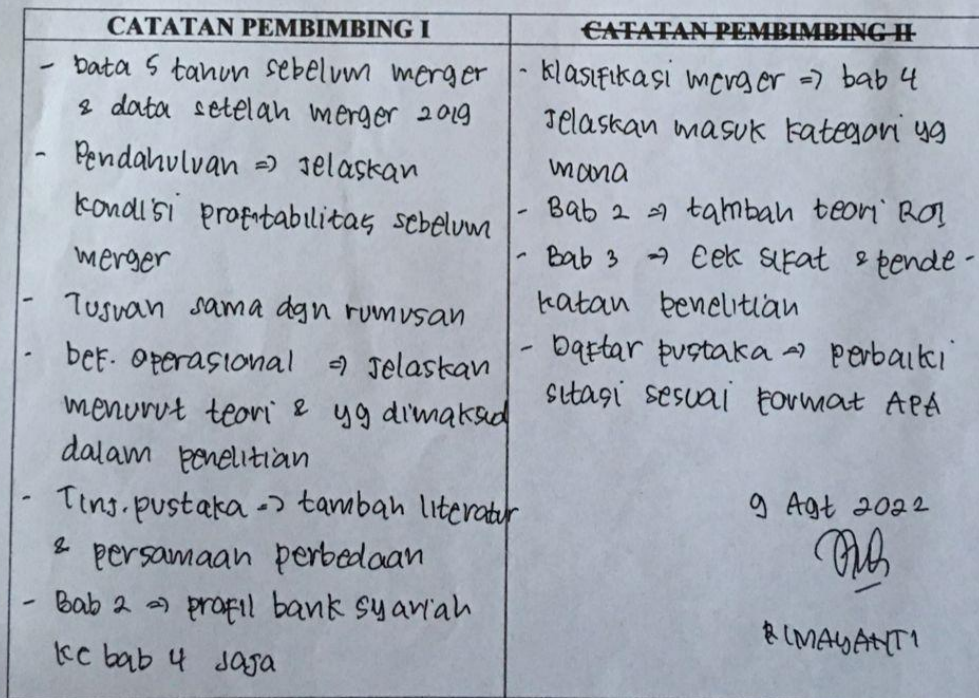 CATATAN PEMBIMBING I
- Data 5 tahun sebelum merger
& data setelah merger 2019
- Pendahuluan => Jelaskan
kondisi profitabilitas sebelum
merger
- Tujuan sama dgn rumusan
- Def. Operasional => Jelaskan
menurut teori & yg dimaksud
dalam penelitian
- Tinj. pustaka => tambah literatur
& persamaan perbedaan
- Bab 2 => profil bank syariah
ke bab 4 saja
CATATAN PEMBIMBING II
- Klasifikasi merger => bab 4
Jelaskan masuk kategori yg
mana
- Bab 2 => tambah teori ROI
- Bab 3 => Cek sifat & pende-
katan penelitian
- Daftar pustaka => perbaiki
sitasi sesuai format APA
9 Agt 2022
RIMAYANTI